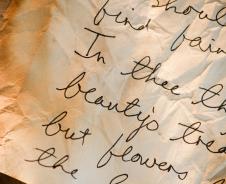 shoul
find
In thee th
beauty's trea
but flowers
the